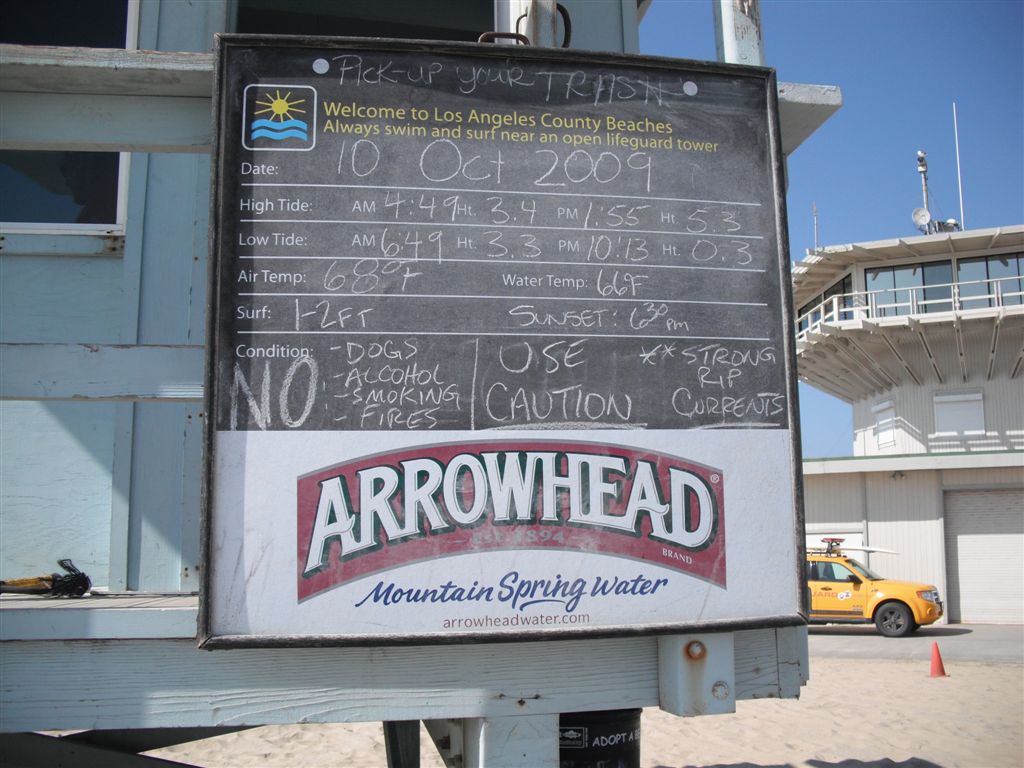 Pick-up your TRASH
Welcome to Los Angeles County Beaches
Always swim and surf near an open lifeguard tower
Date: 10 Oct 2009
High Tide: AM 4:49 Ht. 3.4 PM 1:55 Ht 5.3
Low Tide: AM 6:49 Ht. 3.3 PM 10:13 Ht. 0.3
Air Temp: 68°F Water Temp: 66F
Surf: 1-2FT SUNSET: 6:30 pm
Condition:
NO!
- DOGS
- ALCOHOL
- SMOKING
- FIRES
USE
CAUTION
** STRONG
RIP
CURRENTS
ARROWHEAD®
- EST. 1894 -
BRAND
Mountain Spring Water
arrowheadwater.com
ADOPT A BE
UARD